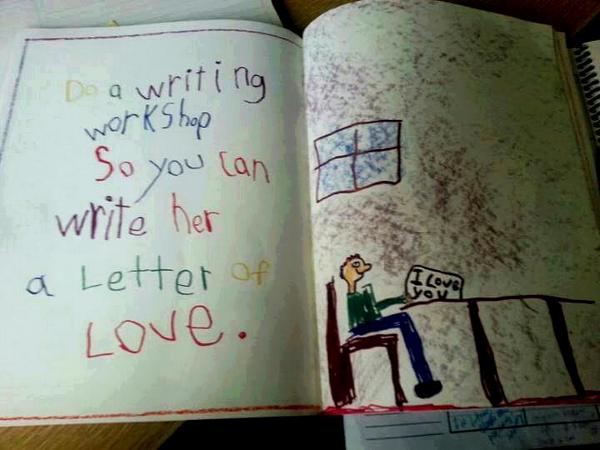 Do a writing
workshop
So you can
write her
a Letter of
Love.
I Love
you